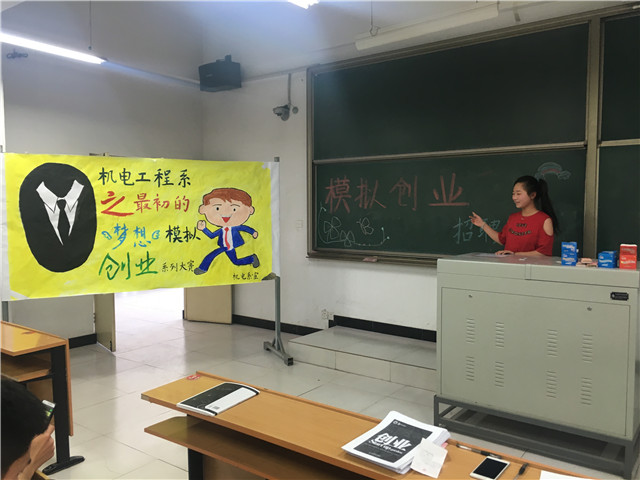 机电工程系
之最初的
梦想 模拟
创业 系列大赛
机电系宣
模拟创业
招聘
创业